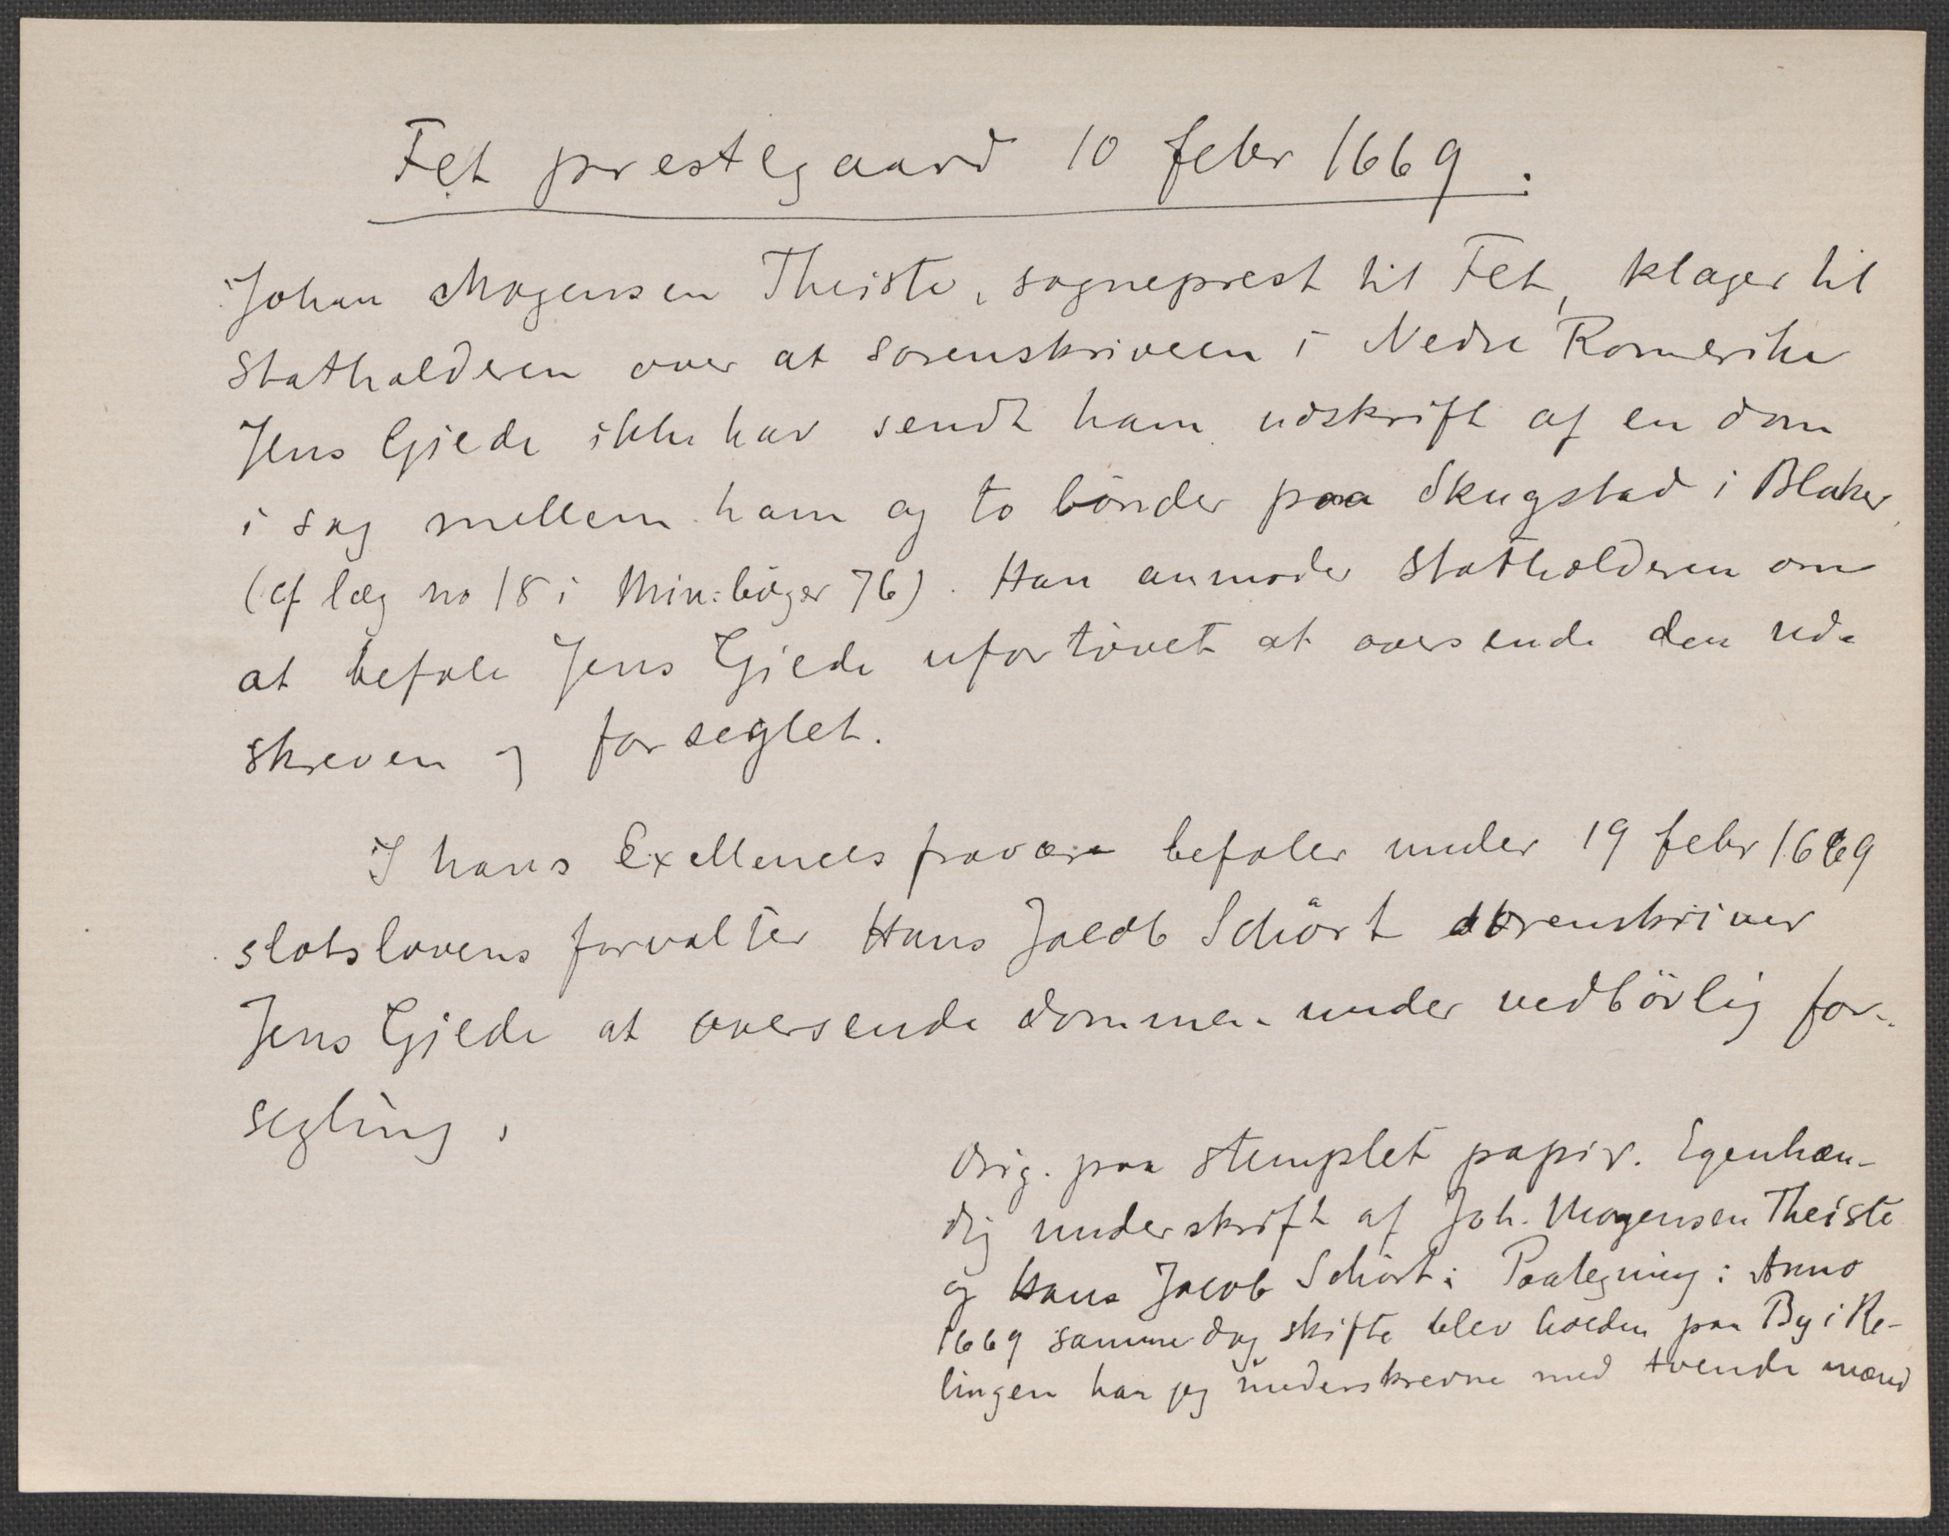 Fet prestegaard 10 febr 1669.
Johan Mogensen Theiste, sogneprest til Fet, klager til
statholderen over at sorenskriveren i Nedre Romerike
Jens Gjede ikke har sendt ham udskrift af en dom
i sag mellem ham og to bönder paa Skugstad i Blaker
(cf læg no 18 i Min: böger 76). Han anmoder statholderen om
at befale Jens Gjede ufortövet at oversende den ud-
skreven og forseglet.
I hans Exellences fravær befaler under 19 febr 1669
slotslovens forvalter Hans Jacob Schört sorenskriver
Jens Gjede at oversende dommen under vedbörlig for-
segling.
Orig. paa stemplet papir. Egenhæn-
dig underskrift af Joh. Mogensen Theiste
og Hans Jacob Schört. Paategning: Anno
1669 samme dag skifte blev holden paa By i Re-
lingen har jeg underskrevne med tvende mænd